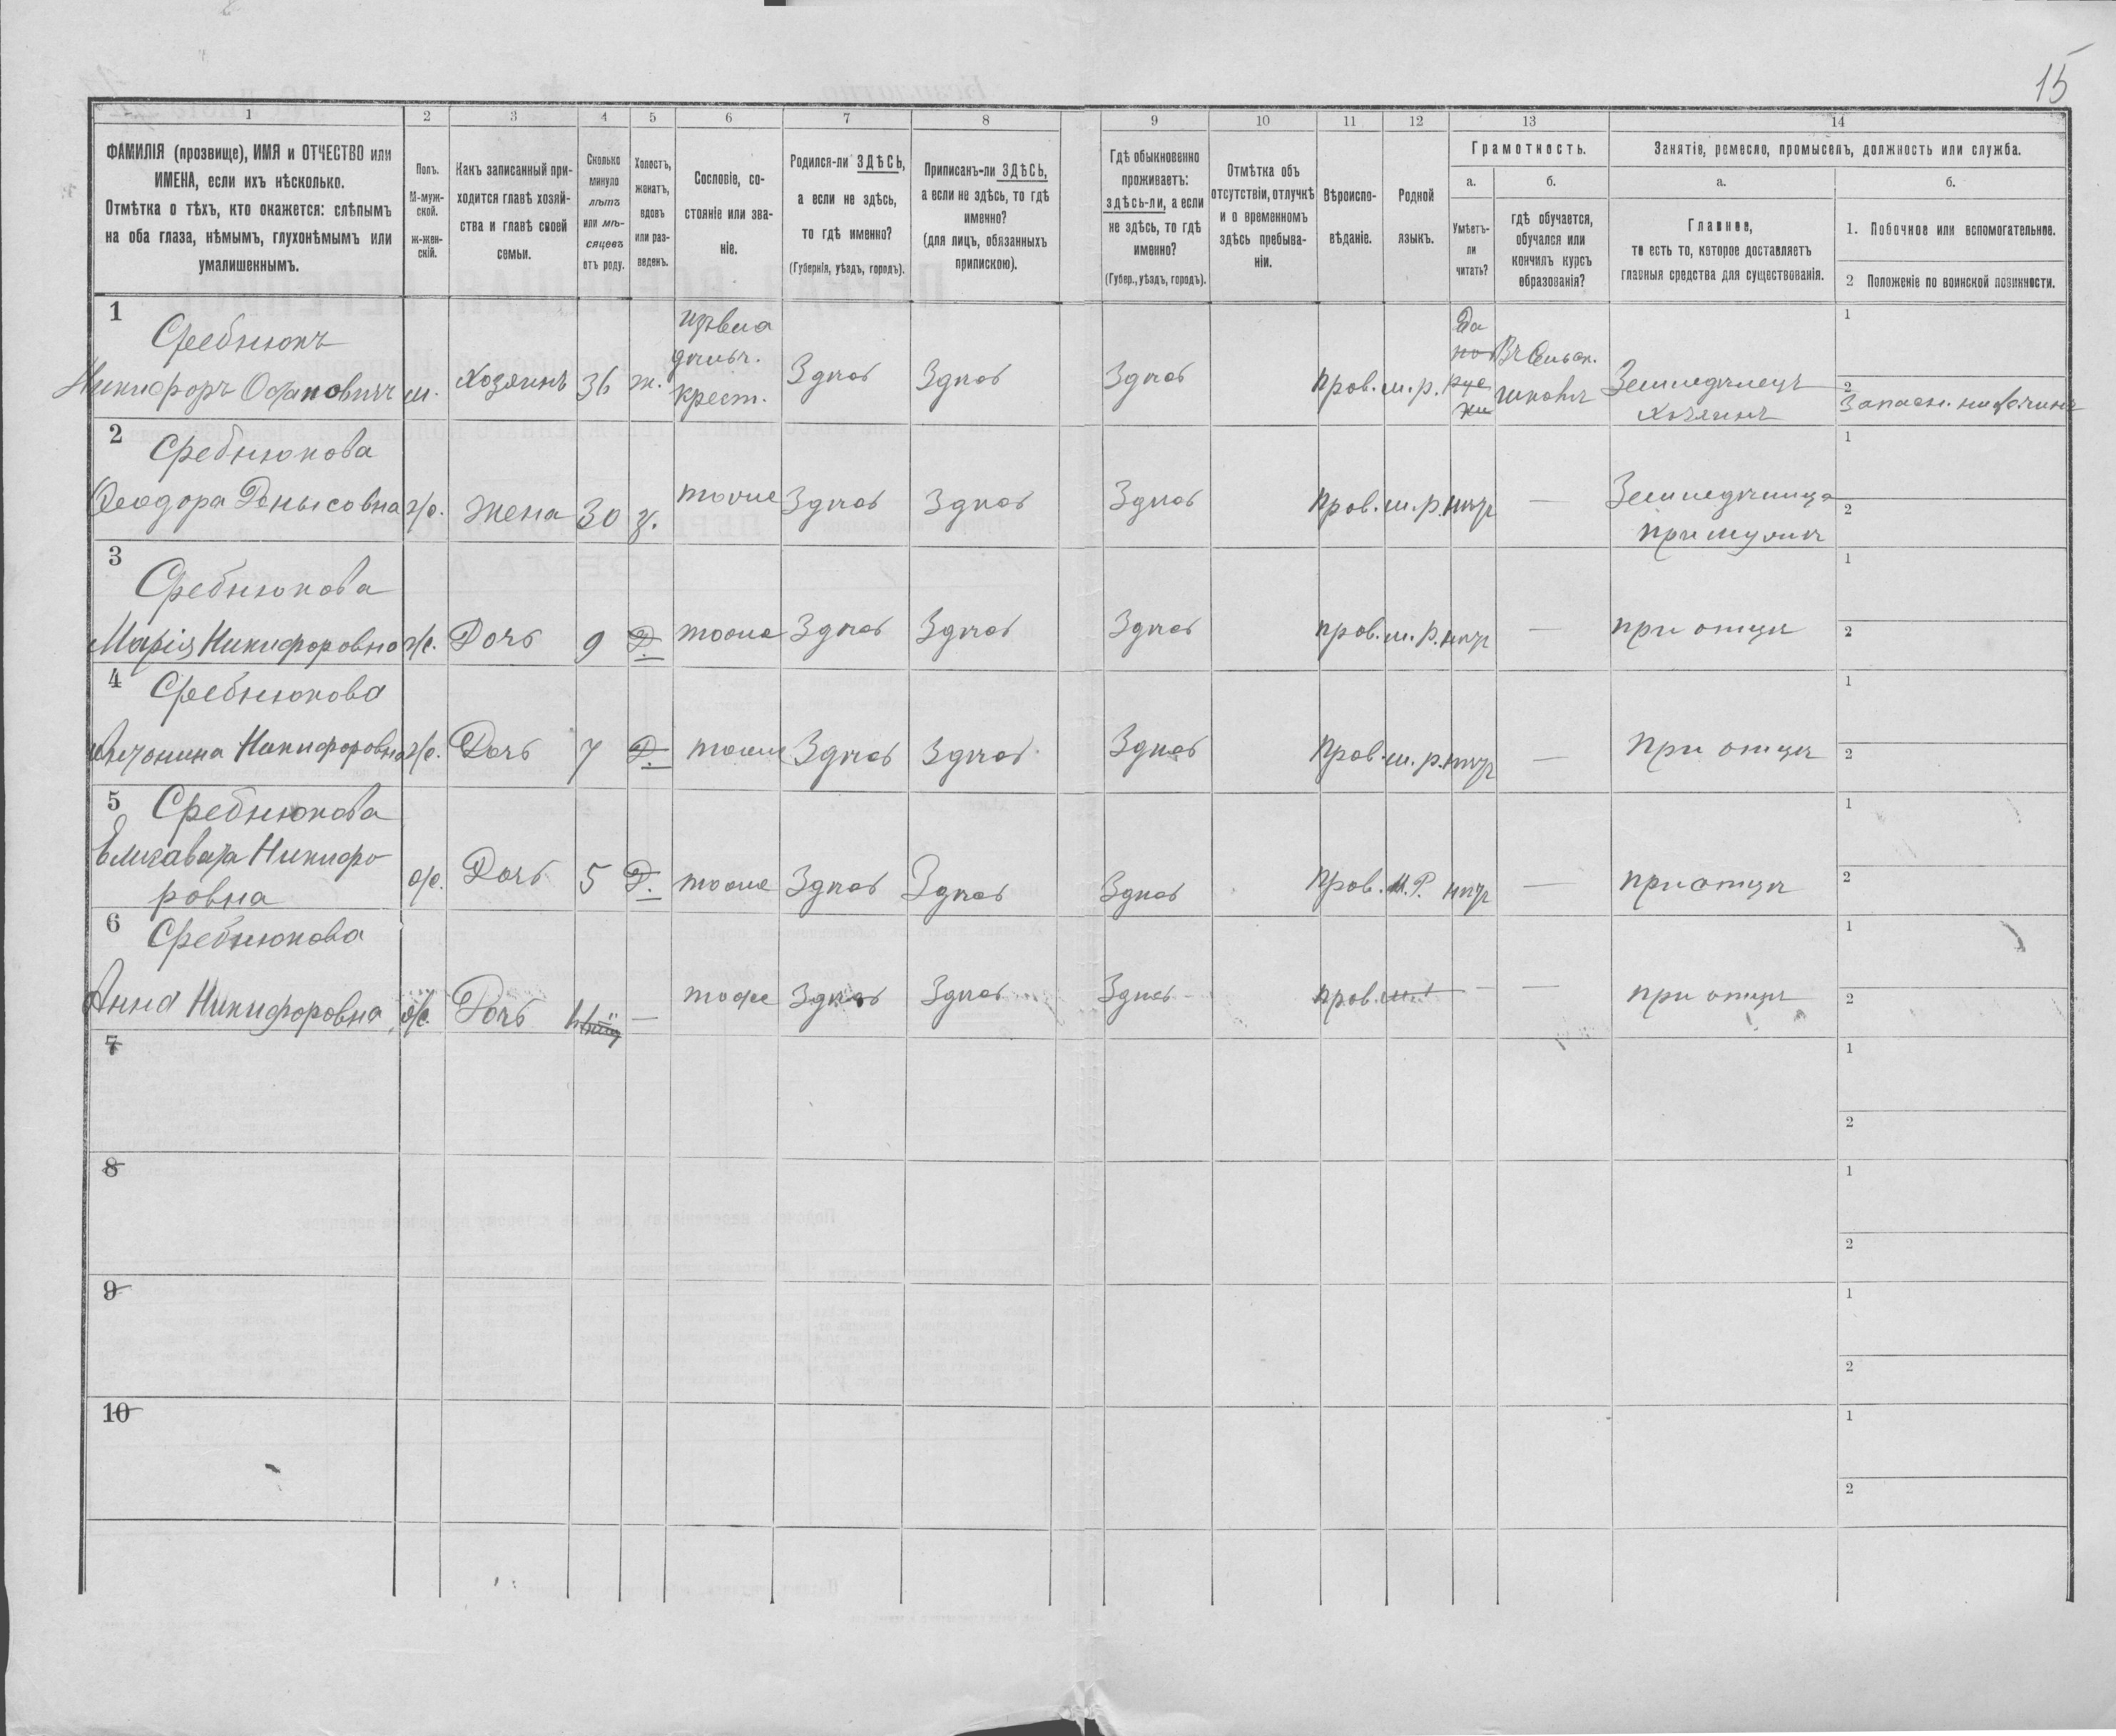 15
1 2 3 4 5 6 7 8 9 10 11 12 13 14
ФАМИЛІЯ (прозвище), ИМЯ и ОТЧЕСТВО или
ИМЕНА, если ихъ нѣсколько.
Отмѣтка о тѣхъ, кто окажется: слѣпымъ
на оба глаза, нѣмымъ, глухонѣмымъ или
умалишеннымъ.
Полъ.
М-муж-
ской.
ж-жен-
скій.
Какъ записанный при-
ходится главѣ хозяй-
ства и главѣ своей
семьи.
Сколько
минуло
лѣтъ
или мѣ-
сяцевъ
отъ роду.
Холостъ,
женатъ,
вдовъ
или раз-
веденъ.
Сословіе, со-
стояніе или зва-
ніе.
Родился-ли ЗДѢСЬ,
а если не здѣсь,
то гдѣ именно?
(Губернія, уѣздъ, городъ).
Приписанъ-ли ЗДѢСЬ,
а если не здѣсь, то гдѣ
именно?
(для лицъ, обязанныхъ
припискою).
Гдѣ обыкновенно
проживаетъ:
здѣсь-ли, а если
не здѣсь, то гдѣ
именно?
(Губер., уѣздъ, городъ).
Отмѣтка объ
отсутствіи, отлучкѣ
и о временномъ
здѣсь пребыва-
ніи.
Вѣроиспо-
вѣданіе.
Родной
языкъ.
Грамотность.
а.
Умѣетъ-
ли
читать?
б.
гдѣ обучается,
обучался или
кончилъ курсъ
образованія?
Занятіе, ремесло, промыселъ, должность или служба.
а.
Главное,
то есть то, которое доставляетъ
главныя средства для существованія.
б.
1. Побочное или вспомогательное.
2 Положеніе по воинской повинности.
1
Сребнюкъ
Никифоръ м. хозяинъ 36 ж. крест. Здѣсь Здѣсь Здѣсь Прав. м.р. Да Земледѣлецъ
хозяинъ
1
2
2
Сребнюкова
Феодора Денысовна ж. жена 30 з. тоже Здѣсь Здѣсь Здѣсь Прав. м.р. нѣтъ — Земледѣлица
при мужѣ
1
2
3
Сребнюкова
Марія Никифоровна ж. Дочь 9 Д. тоже Здѣсь Здѣсь Здѣсь прав. м.р. нѣтъ — при отцѣ
1
2
4
Сребнюкова
Никифоровна ж. Дочь 7 Д. тоже Здѣсь Здѣсь Здѣсь Прав. м.р. нѣтъ — при отцѣ
1
2
5
Сребнюкова
Елизавета Никифо-
ровна ж. Дочь 5 Д. тоже Здѣсь Здѣсь Здѣсь Прав. м.р. нѣтъ — при отцѣ
1
2
6
Сребнюкова
Анна Никифоровна ж. Дочь — тоже Здѣсь Здѣсь Здѣсь прав. — — при отцѣ
1
2
7
1
2
8
1
2
9
1
2
10
1
2